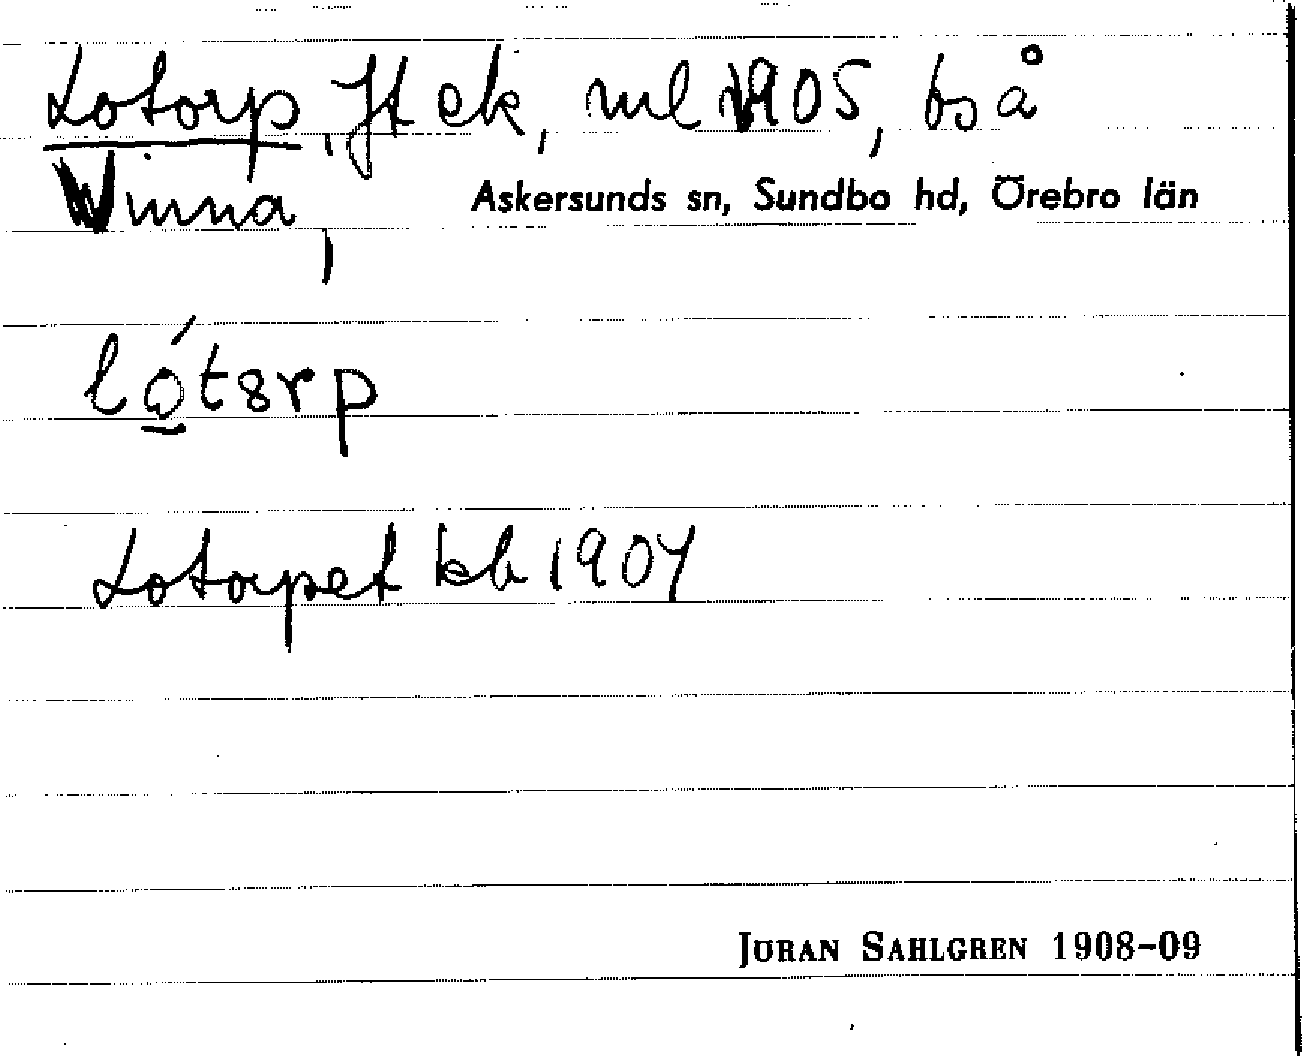 Lotorp, Jt ek, ml 1905, bs å
Vinna, Askersunds sn, Sundbo hd, Örebro län
ló̲tsrp
Lotorpet kb 1907
JÖRAN SAHLGREN 1908-09